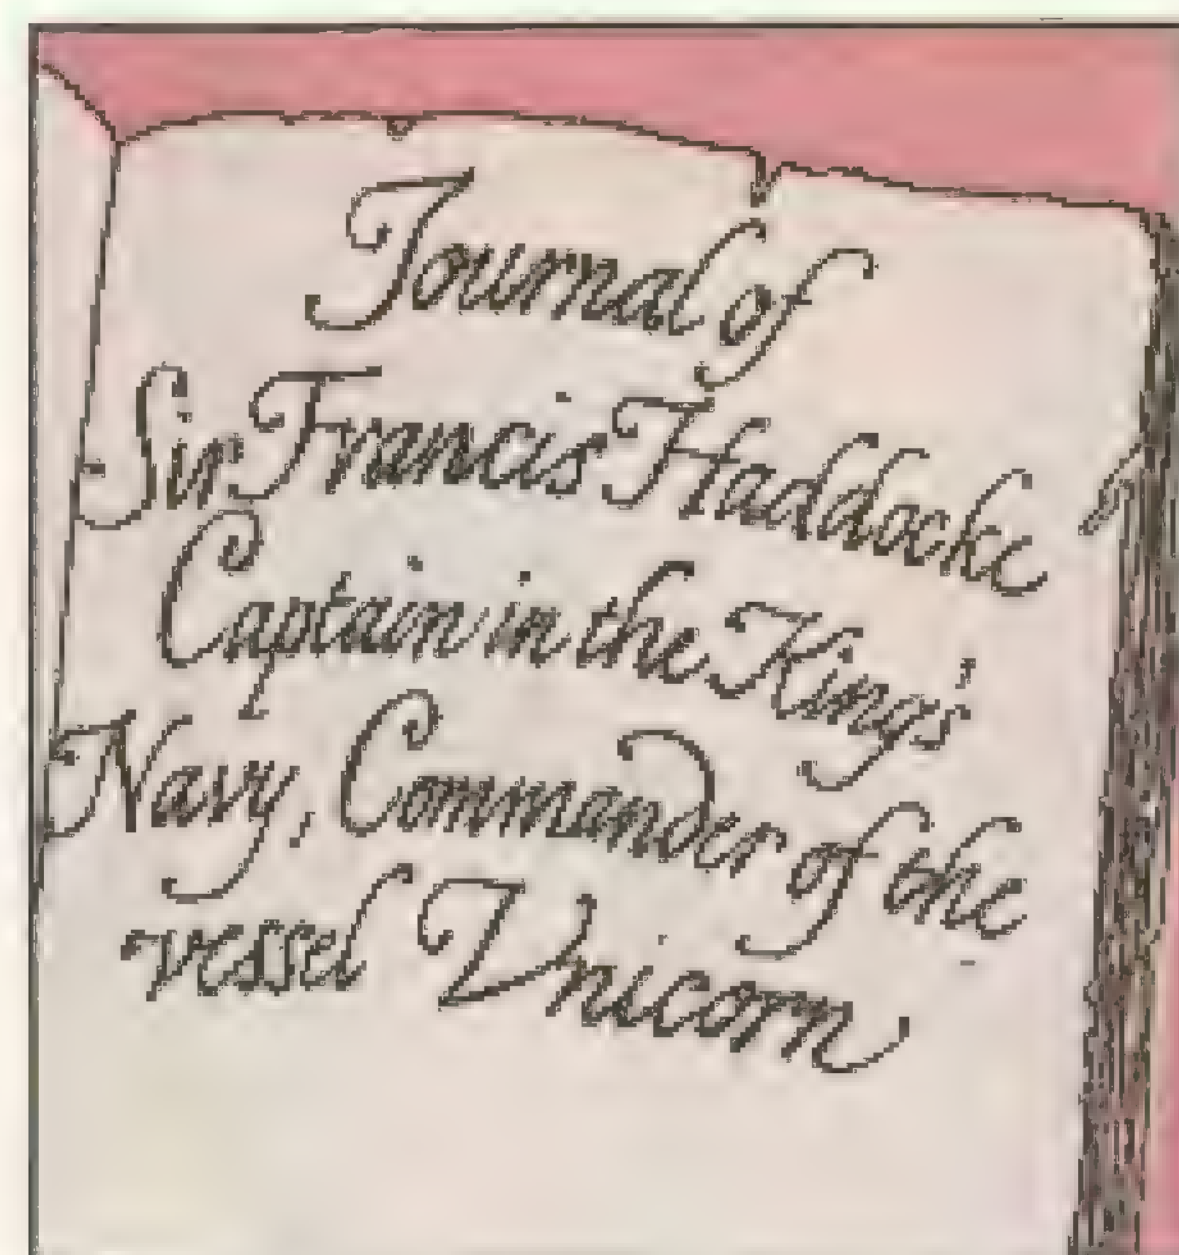 Journal of
Sir Francis Haddocke
Captain in the King's
Navy, Commander of the
vessel Unicorn